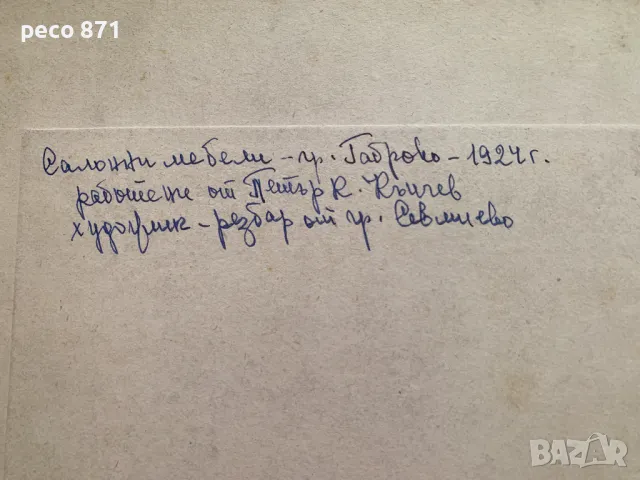 peco 871
Салонни мебели – гр. Габрово – 1924 г.
работени от Петър К. Кънчев
художник – резбар от гр. Севлиево
BAZAR